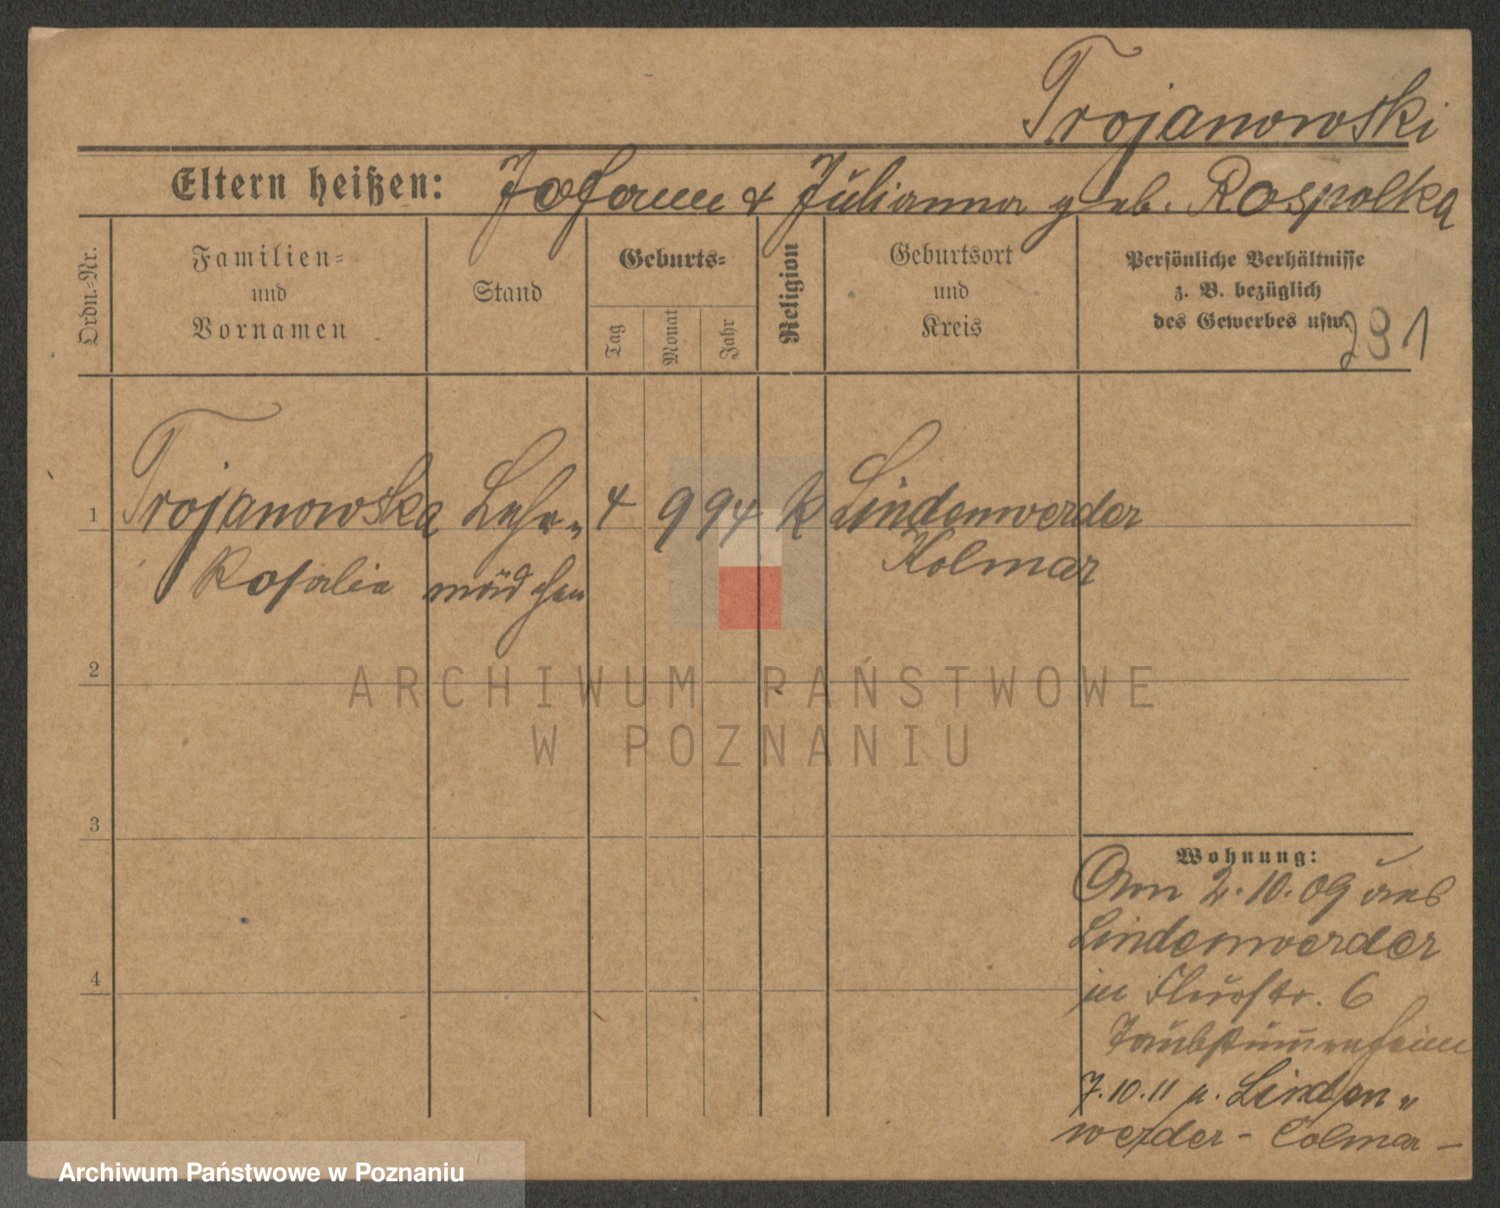 Trojanowski
Eltern heißen: Johann & Julianna geb. Rospolka
Ordn.-Nr.
Familien-
und
Vornamen
Stand
Geburts-
Tag
Monat
Jahr
Religion
Geburtsort
und
Kreis
Persönliche Verhältnisse
z. B. bezüglich
des Gewerbes usw.
291
1 Trojanowska Lehr- 4 9 94 K Lindenwerder
Rosalia mädchen Kolmar
2
ARCHIWUM PAŃSTWOWE
W POZNANIU
3
Wohnung:
Am 2.10.09 aus
Lindenwerder
4
in Flurstr. 6
Taubstummenheim
7.10.11 n. Linden-
werder - Colmar -
Archiwum Państwowe w Poznaniu